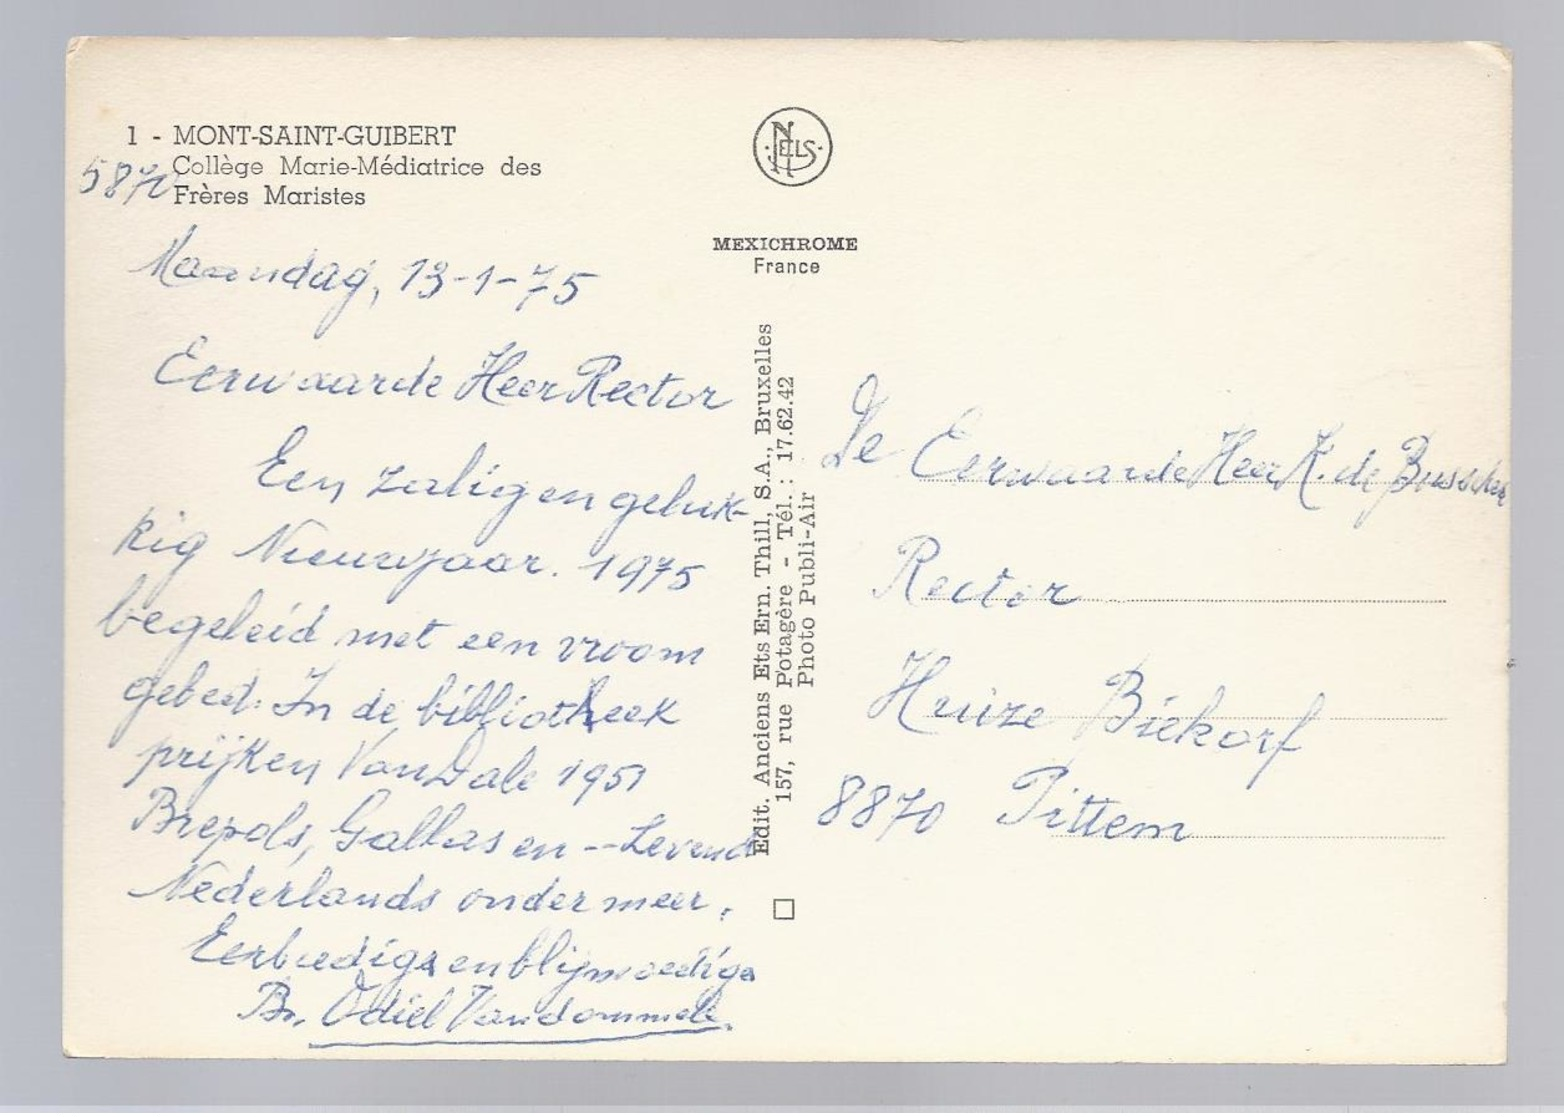 1 - MONT-SAINT-GUIBERT
5870 Collège Marie-Médiatrice des
Frères Maristes
Maandag, 13-1-75
Eerwaarde Heer Rector
Een zalig en geluk-
kig Nieuwjaar. 1975
begeleid met een vroom
gebed. In de bibliotheek
prijken Van Dale 1951
Brepols, Gallas en -- Levend
Nederlands onder meer.
Eerbiedige en blijmoedige
Br. Odiel Vandommele.
NELS
MEXICHROME
France
Edit. Anciens Ets Ern. Thill, S.A., Bruxelles
157, rue Potagère - Tél. : 17.62.42
Photo Publi-Air
De Eerwaarde Heer K. de Busscher
Rector
Huize Biekorf
8870 Pittem